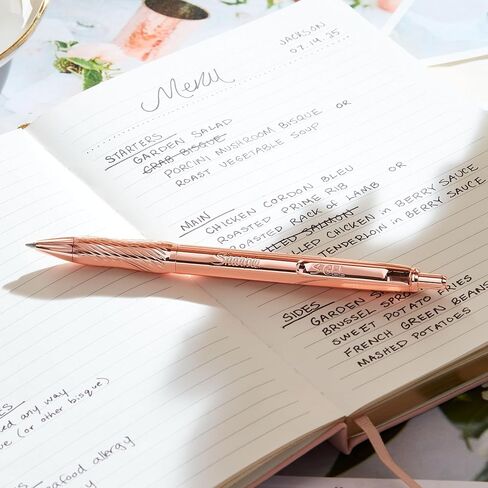 JACKSON
07.14.25
Menu
STARTERS
GARDEN SALAD
CRAB BISQUE
PORCINI MUSHROOM BISQUE OR
ROAST VEGETABLE SOUP
MAIN
CHICKEN CORDON BLEU
ROASTED PRIME RIB
ROASTED RACK of LAMB OR
LLED SALMON
LLED CHICKEN in BERRY SAUCE
TENDERLOIN in BERRY SAUCE
Sharpie S·GEL
SIDES
GARDEN
BRUSSEL SPRO
SWEET POTATO FRIES
FRENCH GREEN BEANS
MASHED POTATOES
ES
ed any way
ue (or other bisque)
eafood allergy